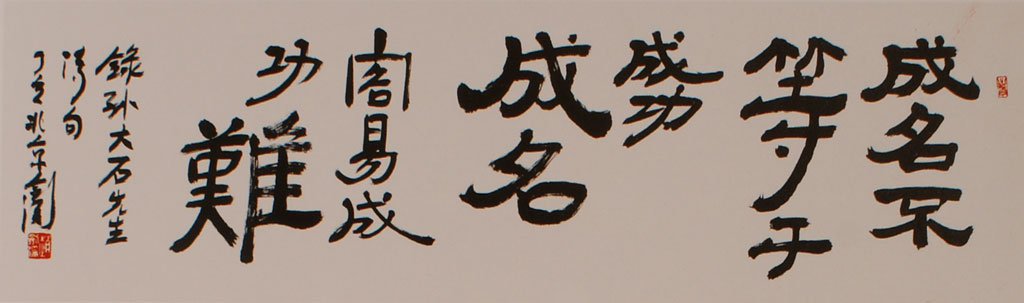 成名不
等于
成功
成名
容易成
功難
錄孙大石先生
诗句
丁亥兆京